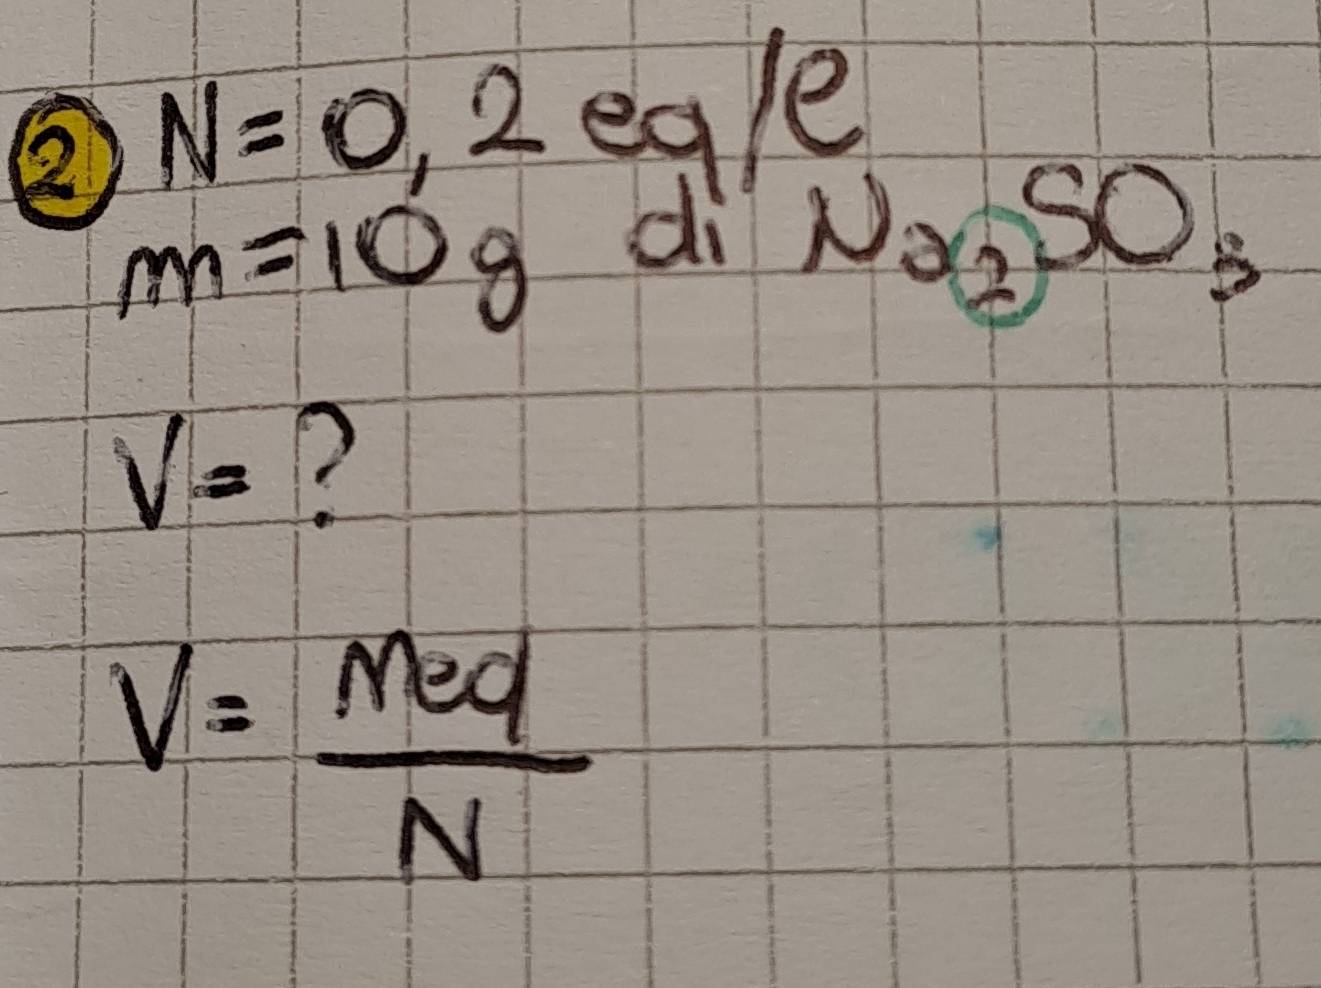 2 N = 0,2 eq/l
m = 10 g di Na2SO3
V = ?
V = neq
N